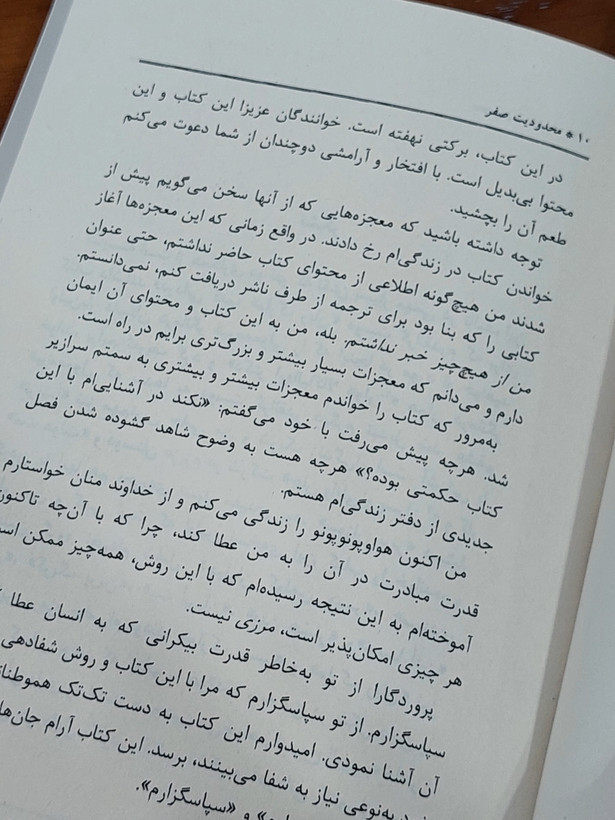 ۱۰ * محدودیت صفر
در این کتاب، برکتی نهفته است. خوانندگان عزیز! این کتاب و این
محتوا بی‌بدیل است. با افتخار و آرامشی دوچندان از شما دعوت می‌کنم
طعم آن را بچشید.
توجه داشته باشید که معجزه‌هایی که از آنها سخن می‌گویم پیش از
خواندن کتاب در زندگی‌ام رخ دادند. در واقع زمانی که این معجزه‌ها آغاز
شدند من هیچ‌گونه اطلاعی از محتوای کتاب حاضر نداشتم، حتی عنوان
کتابی را که بنا بود برای ترجمه از طرف ناشر دریافت کنم، نمی‌دانستم.
من از هیچ‌چیز خبر نداشتم. بله، من به این کتاب و محتوای آن ایمان
دارم و می‌دانم که معجزات بسیار بیشتر و بزرگ‌تری برایم در راه است.
به‌مرور که کتاب را خواندم معجزات بیشتر و بیشتری به سمتم سرازیر
شد. هرچه پیش می‌رفت با خود می‌گفتم: «نکند در آشنایی‌ام با این
کتاب حکمتی بوده؟» هرچه هست به وضوح شاهد گشوده شدن فصل
جدیدی از دفتر زندگی‌ام هستم.
من اکنون هواوپونوپونو را زندگی می‌کنم و از خداوند منان خواستارم
قدرت مبادرت در آن را به من عطا کند، چرا که با آن‌چه تاکنون
آموخته‌ام به این نتیجه رسیده‌ام که با این روش، همه‌چیز ممکن است
هر چیزی امکان‌پذیر است، مرزی نیست.
پروردگارا از تو به‌خاطر قدرت بیکرانی که به انسان عطا
سپاسگزارم. از تو سپاسگزارم که مرا با این کتاب و روش شفادهی
آن آشنا نمودی. امیدوارم این کتاب به دست تک‌تک هموطنان
به‌نوعی نیاز به شفا می‌بینند، برسد. این کتاب آرام جان‌ها
و «سپاسگزارم».